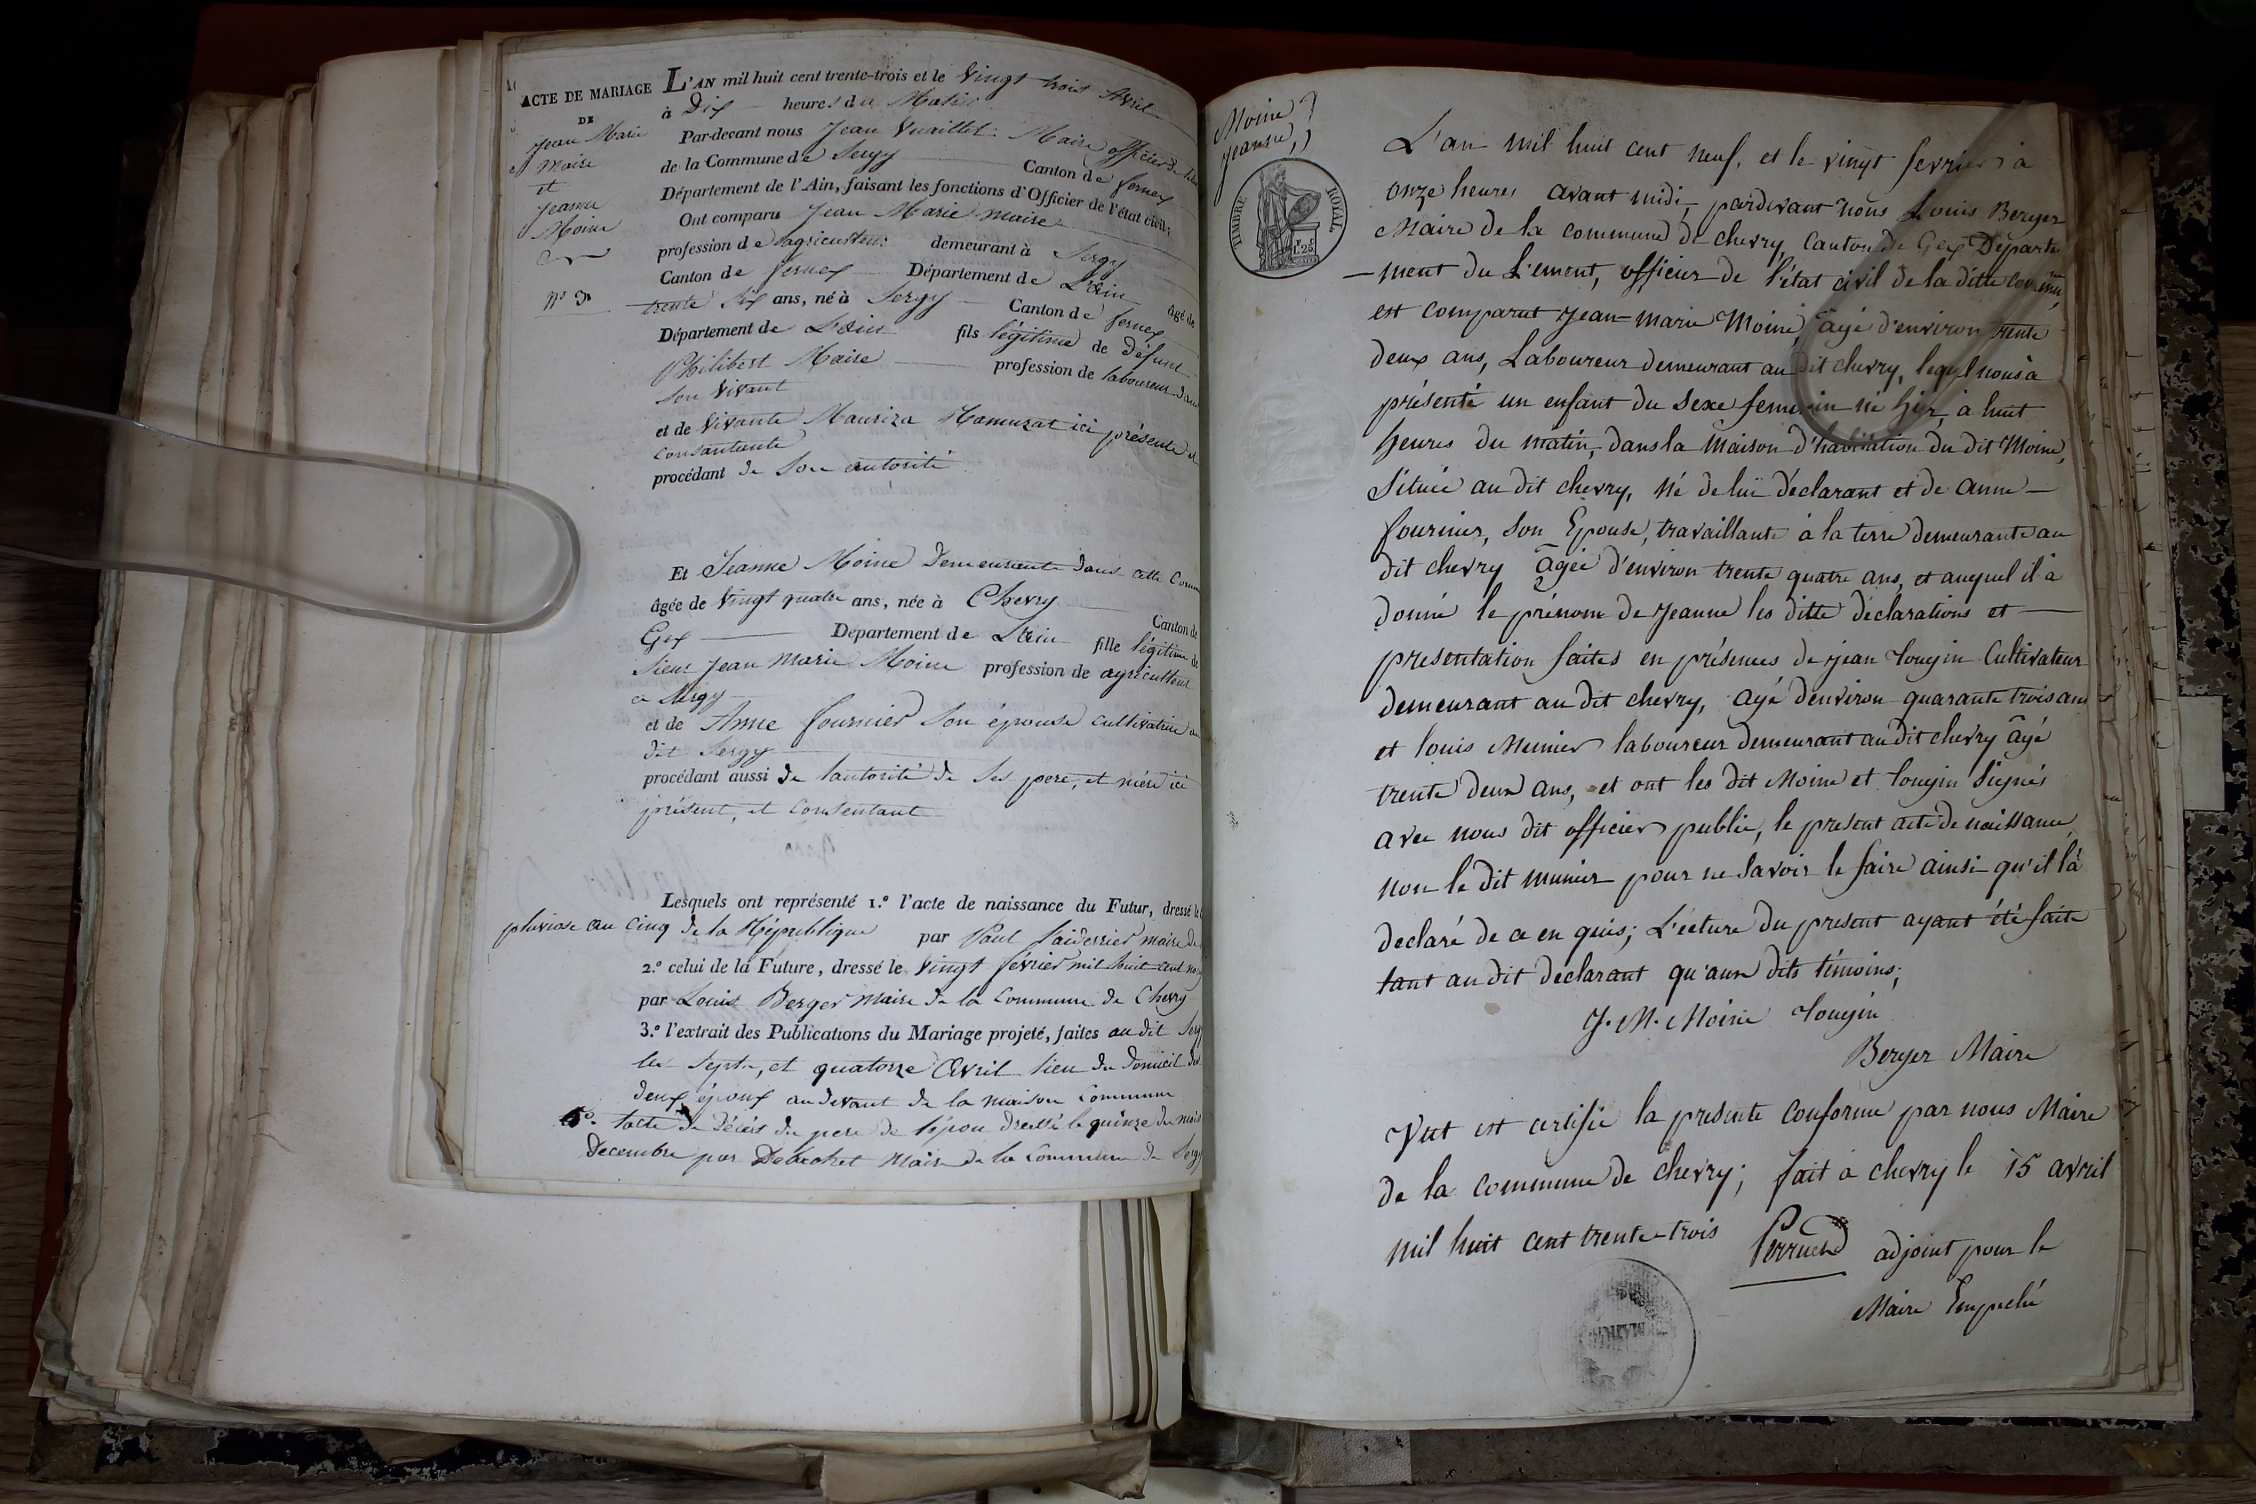 ACTE DE MARIAGE
DE
Jean Marie
Maire
et
Jeanne
Moine
N° 3
L'AN mil huit cent trente-trois et le Vingt trois Avril
à Dix heures du Matin
Par-devant nous Jean Vuaillet Maire officier de
de la Commune de Sergy Canton de fernex
Département de l'Ain, faisant les fonctions d'Officier de l'état civil;
Ont comparu Jean Marie Maire
profession de agriculteur demeurant à Sergy
Canton de fernex Département de L'ain âgé de
trente Six ans, né à Sergy Canton de fernex
Département de L'Ain fils légitime de défunt
Philibert Maire profession de laboureur dans
Son Vivant
et de Vivante Mauriza Hamuzat ici présente et
consantante
procédant de Son autorité
Et Jeanne Moine Demeurante dans cette Comm
âgée de Vingt quatre ans, née à Chevry Canton de
Gex Département de L'Ain fille légitime de
Sieur Jean Marie Moine profession de agriculteur
a Sergy
et de Anne fournier Son épouse cultivatrice au
dit Sergy
procédant aussi de l'autorité de Ses pere, et mère ici
présent, et consentant
Lesquels ont représenté 1.° l'acte de naissance du Futur, dressé le
pluviose an Cinq de la République par Paul maire de
2.° celui de la Future, dressé le Vingt février mil huit cent neuf
par Louis Berger Maire de la Commune de Chevry
3.° l'extrait des Publications du Mariage projeté, faites au dit Sergy
les Septe, et quatorze Avril lieu du Domicil des
deux époux au devant de la maison Commune
l'acte de décès du pere de l'épou dressé le quinze du mois
Decembre par Debrohet Maire de la Commune de Sergy
Moine
Jeanne
TIMBRE ROYAL
1.25
L'an mil huit cent neuf, et le vingt fevrier à
onze heures avant midi, pardevant nous Louis Berger
Maire de la commune de chevry, Canton de Gex Départe
-ment du Lément, officier de l'état civil de la ditte commune,
est comparut Jean-marie Moine, âgé d'environ trente
deux ans, Laboureur demeurant au dit chevry, lequel nous à
présenté un enfant du Sexe femenin né hier, à huit
heures du matin, dans la Maison d'habitation du dit Moine,
Située au dit chevry, né de lui déclarant et de anne
fournier, Son Epouse, travaillante à la terre demeurante au
dit chevry âgée d'environ trente quatre ans, et auquel il à
donné le prénom de Jeanne les ditte déclarations et
présentation faites en présences de Jean Tougin Cultivateur
demeurant au dit chevry, agé d'environ quarante trois ans
et louis Meunier laboureur demeurant au dit chevry âgé
trente deux ans, et ont les dit Moine et Tougin Signés
avec nous dit officier public, le present acte de naissance,
non le dit munier pour ne Savoir le faire ainsi qu'il là
declaré de ce en quis; L'ecture du present ayant été faite
tant au dit declarant qu'aux dits témoins;
J. M. Moine Tougin
Berger Maire
Vut est certifié la presente conforme par nous Maire
de la commune de chevry; fait à chevry le 15 avril
mil huit cent trente-trois Perruchd adjoint pour le
Maire Empeché